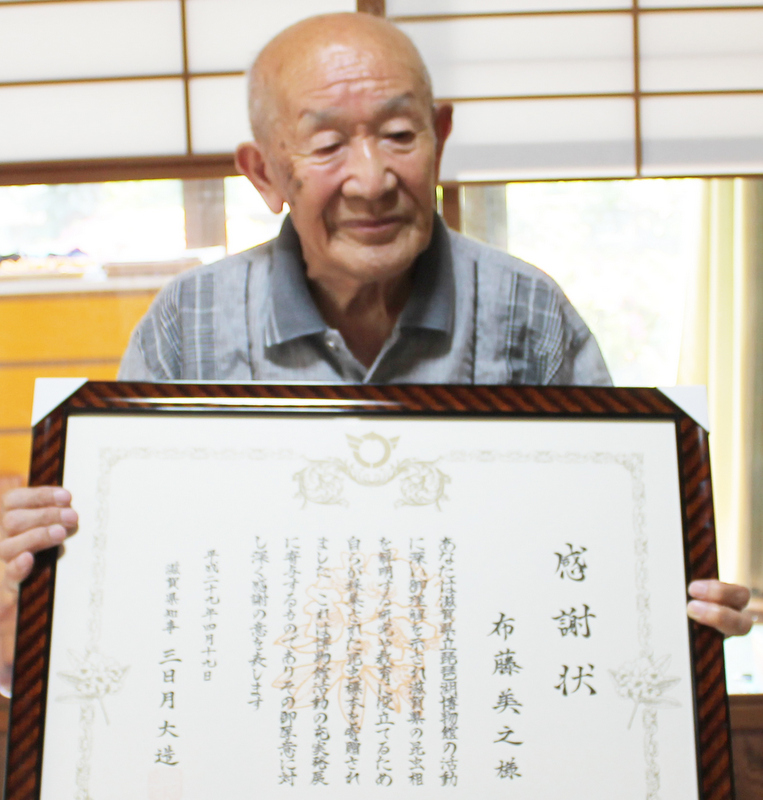 感謝状
布藤美之様
あなたは滋賀県立琵琶湖博物館の活動
に深い御理解を示され滋賀県の昆虫相
を解明する研究や教育に役立てるため
自らが採集された昆虫標本を寄贈され
ました これは博物館活動の充実発展
に寄与するものでありその御厚意に対
し深く感謝の意を表します
平成二十九年四月十九日
滋賀県知事 三日月大造